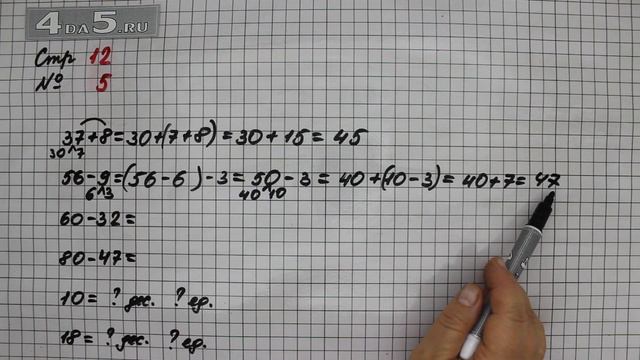 4DA5.RU
Стр 12
№ 5
37+8=30+(7+8)=30+15=45
30^7
56-9=(56-6)-3=50-3=40+(10-3)=40+7=47
6^3 40^10
60-32=
80-47=
10=?дес. ?ед.
18=?дес. ?ед.